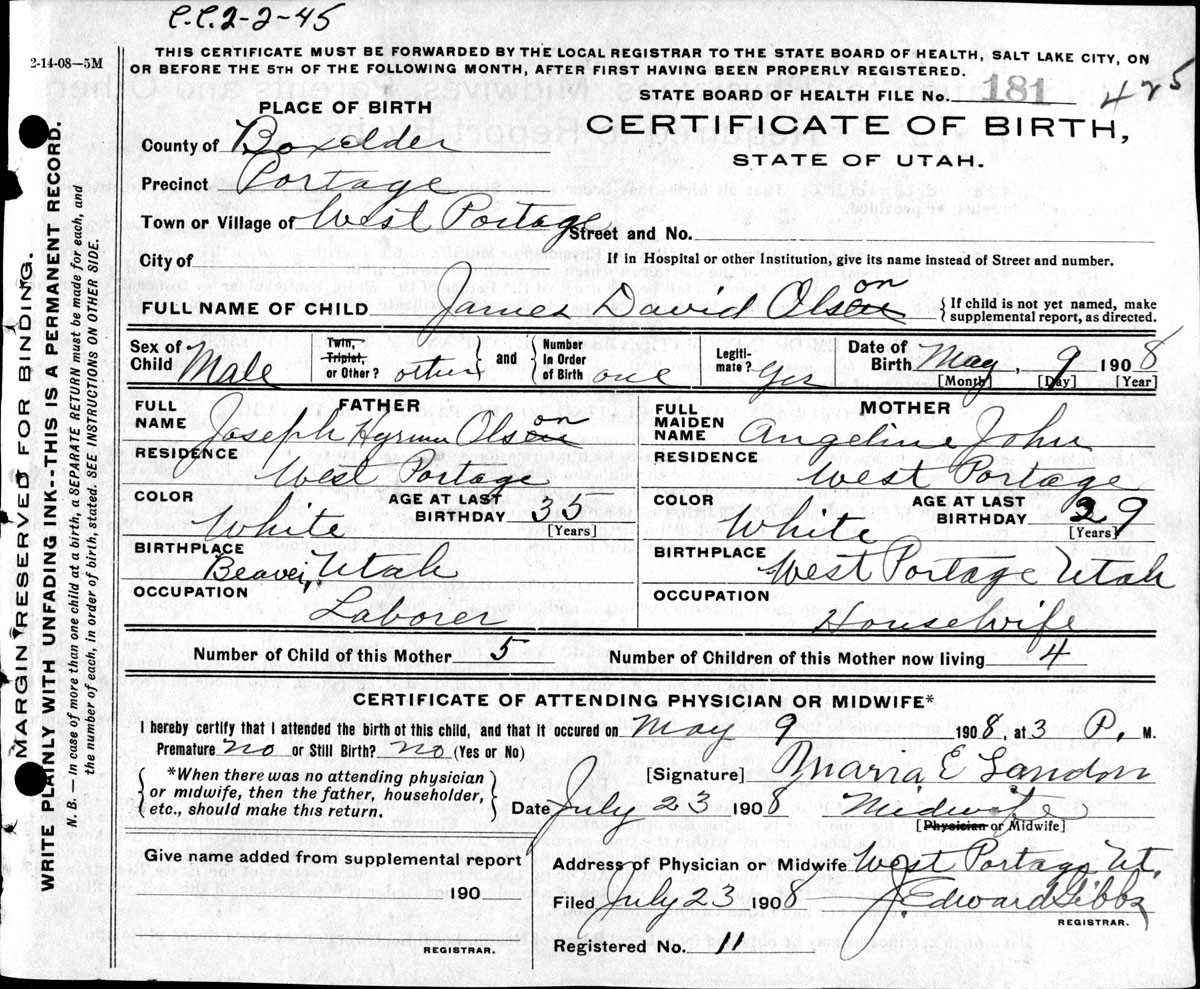 C.C. 2-2-45
2-14-08—5M
THIS CERTIFICATE MUST BE FORWARDED BY THE LOCAL REGISTRAR TO THE STATE BOARD OF HEALTH, SALT LAKE CITY, ON
OR BEFORE THE 5TH OF THE FOLLOWING MONTH, AFTER FIRST HAVING BEEN PROPERLY REGISTERED.
STATE BOARD OF HEALTH FILE No. 181 425
PLACE OF BIRTH
CERTIFICATE OF BIRTH,
STATE OF UTAH.
County of Boxelder
Precinct Portage
Town or Village of West Portage Street and No.
City of If in Hospital or other Institution, give its name instead of Street and number.
FULL NAME OF CHILD James David Olsen on {If child is not yet named, make
supplemental report, as directed.
Sex of Child Male Twin, Triplet, or Other? other } and { Number In Order of Birth one Legitimate? Yes Date of Birth May, 9 1908
[Month] [Day] [Year]
FATHER
FULL NAME Joseph Hyrum Olsen on
RESIDENCE West Portage
COLOR White AGE AT LAST BIRTHDAY 35 [Years]
BIRTHPLACE Beaver, Utah
OCCUPATION Laborer
MOTHER
FULL MAIDEN NAME Angeline John
RESIDENCE West Portage
COLOR White AGE AT LAST BIRTHDAY 29 [Years]
BIRTHPLACE West Portage Utah
OCCUPATION Housewife
Number of Child of this Mother 5 Number of Children of this Mother now living 4
CERTIFICATE OF ATTENDING PHYSICIAN OR MIDWIFE*
I hereby certify that I attended the birth of this child, and that it occured on May 9 1908, at 3 P. M.
Premature no or Still Birth? no (Yes or No)
{*When there was no attending physician
or midwife, then the father, householder,
etc., should make this return.}
[Signature] Maria E Landon
Date July 23 1908 Midwife
[Physician or Midwife]
Give name added from supplemental report
190
REGISTRAR.
Address of Physician or Midwife West Portage Ut.
Filed July 23 1908 J. Edward Gibbs
REGISTRAR.
Registered No. 11
MARGIN RESERVED FOR BINDING.
WRITE PLAINLY WITH UNFADING INK--THIS IS A PERMANENT RECORD.
N. B.— In case of more than one child at a birth, a SEPARATE RETURN must be made for each, and
the number of each, in order of birth, stated. SEE INSTRUCTIONS ON OTHER SIDE.